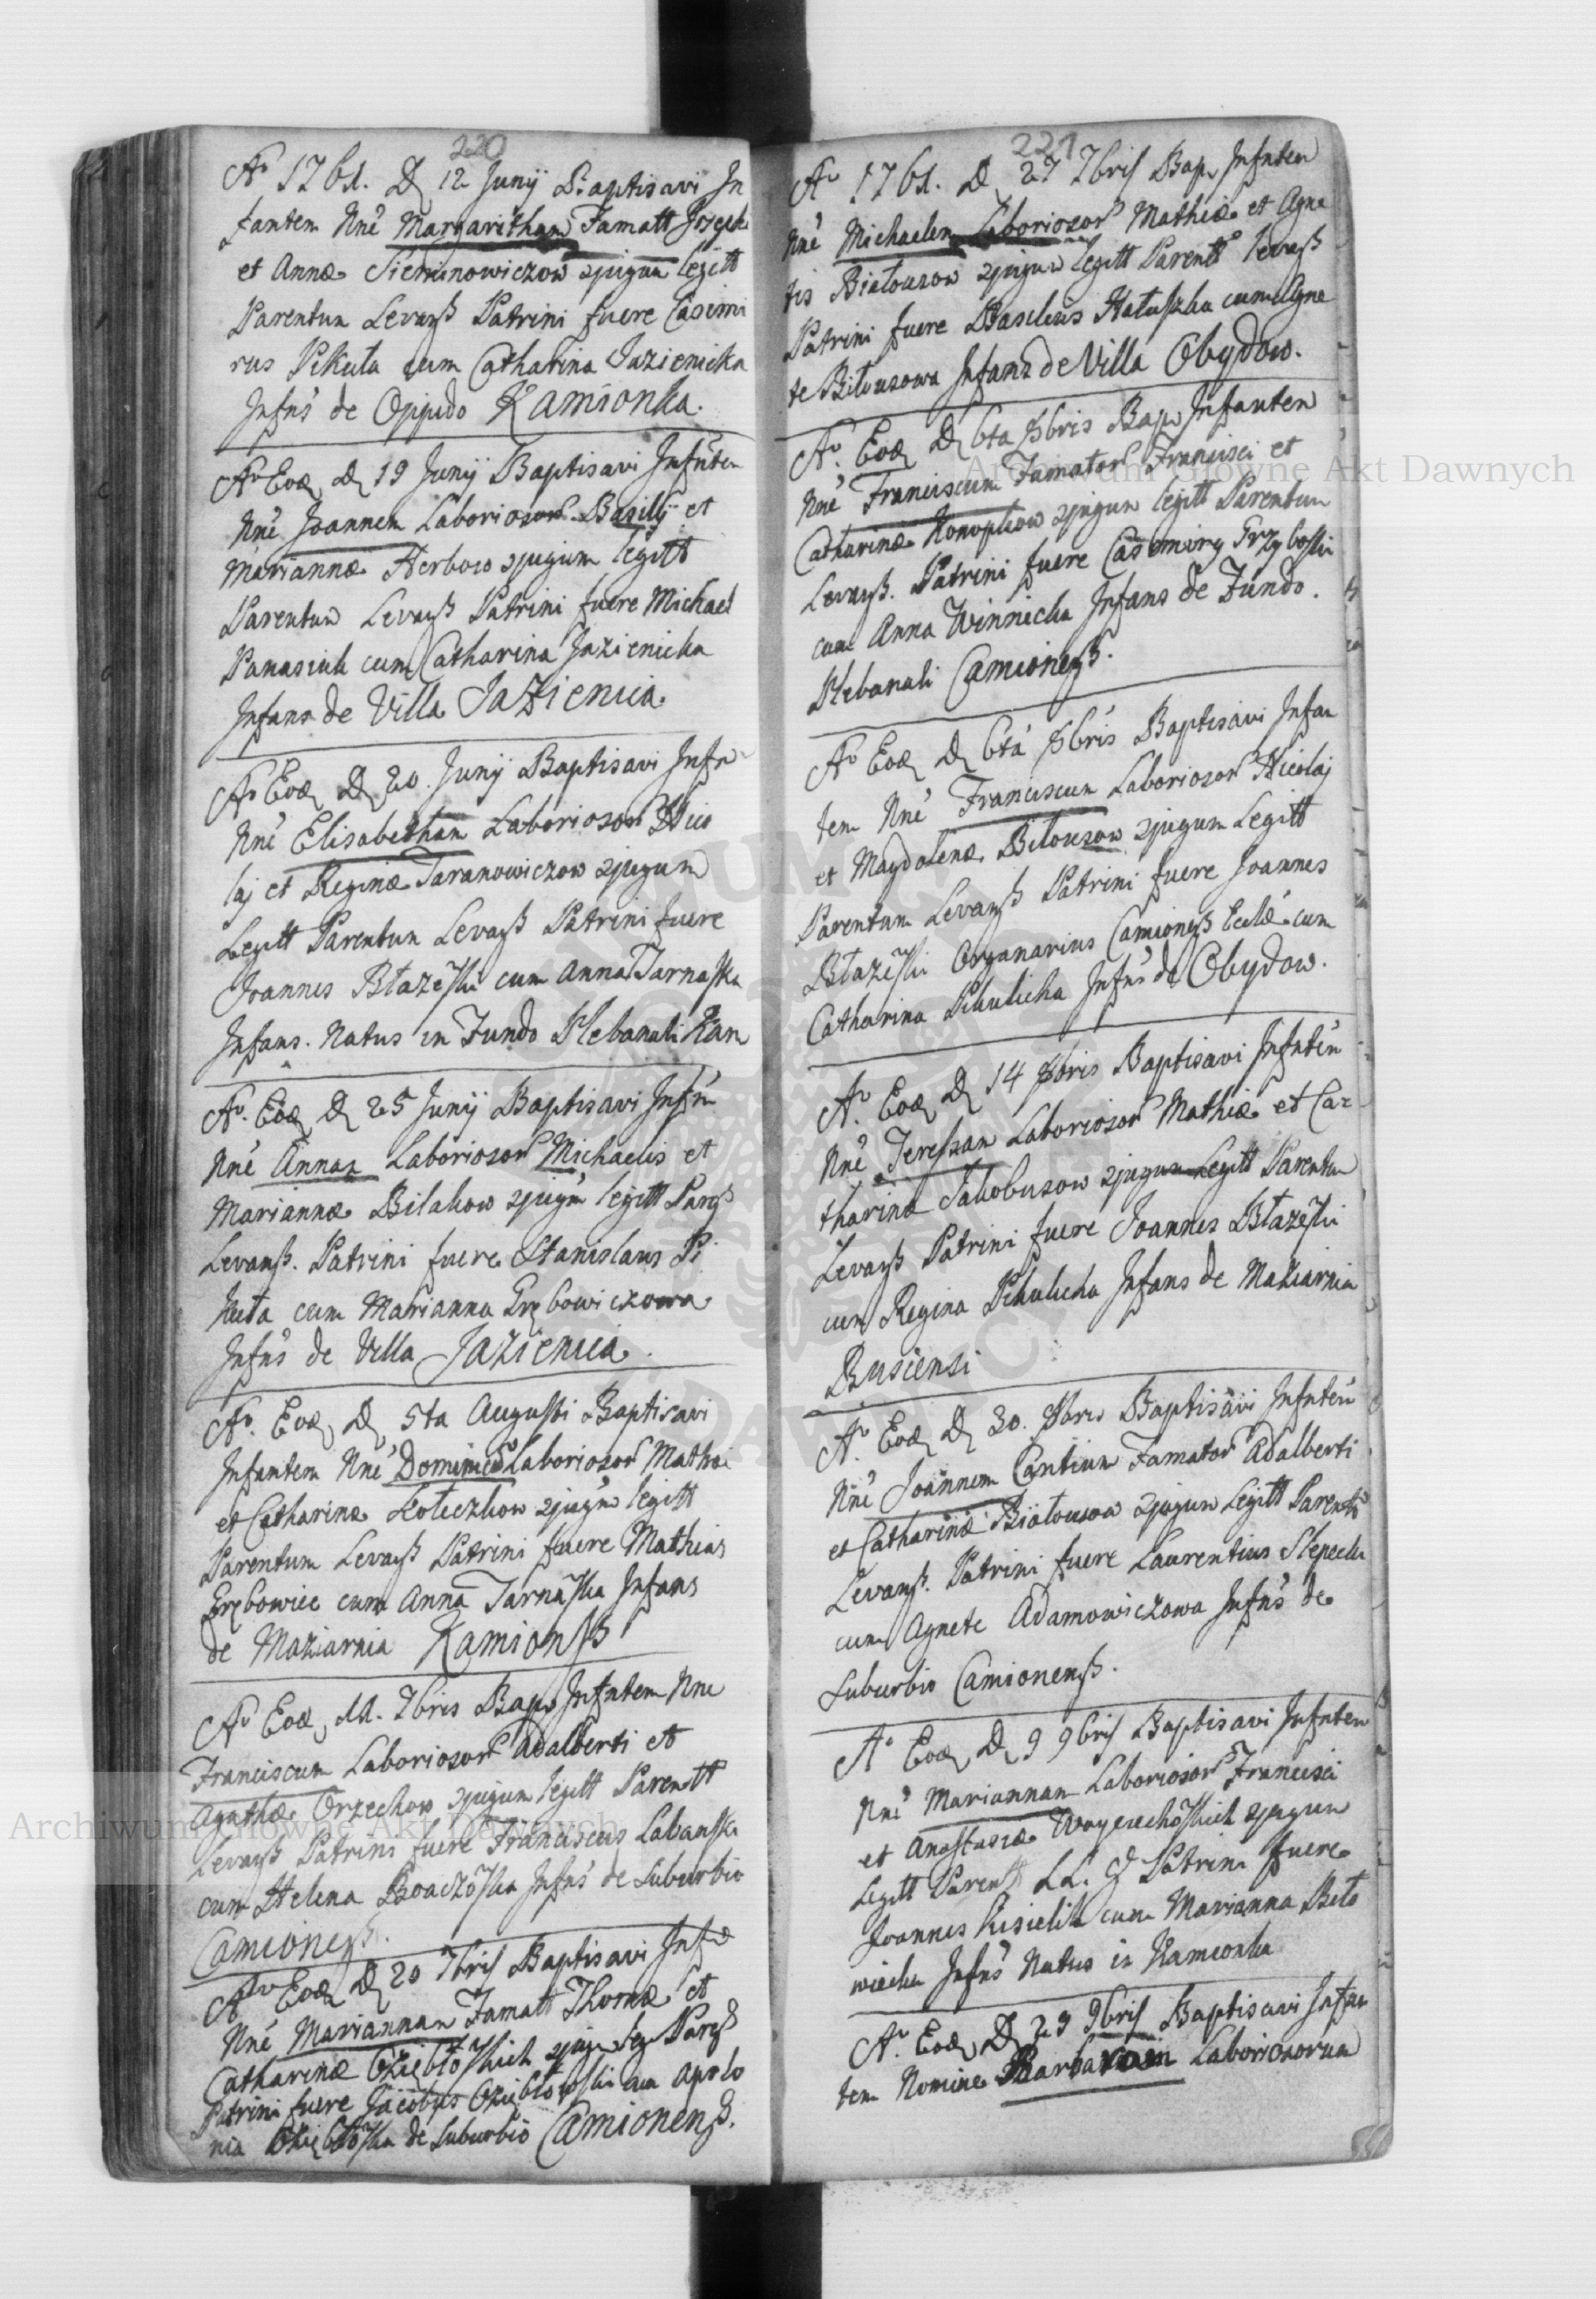 220
Ao 1761. D 12 Junij Baptisavi In
fantem Nne Margaritham Famatt Joseph
et Annæ Sieminowiczow ɔjugum legitt
Parentum Levanß Patrini fuere Casimi
rus Pikuła cum Catharina Jazienicka
Infns de Oppido Kamionka.
Ao Eod D 19 Junij Baptisavi Infntem
Nne Joannem Laboriosor Basilij et
Mariannæ Herbow ɔjugum legitt
Parentum Levanß Patrini fuere Michael
Panasiuk cum Catharina Jazienicka
Infans de Villa Jazienica.
Ao Eod D 20. Junij Baptisavi Infn
Nne Elisabetham Laboriosor Nico
laj et Reginæ Taranowiczow ɔjugum
Legitt Parentum Levanß Patrini fuere
Joannes Błazeski cum Anna Tarnaska
Infans. Natus in Fundo Plebanali Kam
Ao. Eod D 25 Junij Baptisavi Infn
Nne Annam Laboriosor Michaelis et
Mariannæ Bilakow ɔjugm legitt Pargs
Levanß. Patrini fuere Stanislaus Pi
kuta cum Marianna Grębowiczowa
Infns de Villa Jazienica.
Ao. Eod D 5ta Augusti Baptisavi
Infantem Nne Dominicu Laboriosor Mathei
et Catharinæ Kołeczkow ɔjugm legitt
Parentum Levanß Patrini fuere Mathias
Grębowicz cum Anna Tarnaska Infans
de Maziarnia Kamionß
Ao Eod, 11. 7bris Bap. Infntem Nne
Franciscum Laboriosor Adalberti et
Agathæ Orzechow ɔjugum legitt Parentt
Levanß Patrini fuere Franciscus Labanski
cum Helena Infns de Suburbio
Camionenß.
Ao Eod D 20 7bris Baptisavi Infn
Nne Mariannam Famatt Thomæ et
Catharinæ ɔjug leg Pargs
Patrini fuere Jacobus cum Apolo
nia de Suburbio Camionenß.
221
Ao 1761. D 27 7bris Bap. Infntem
Nne Michaelem Laboriosor Mathiæ et Agne
tis Białousow ɔjugum legitt Parentt Levanß
Patrini fuere Basilius Hałuszka cum Agne
te Biłousowa Infans de Villa Obydow.
Ao. Eod D 6ta 8bris Bap. Infantem
Nne Franciscum Famator Francisci et
Catharinæ Konopkow ɔjugum legitt Parentum
Levanß. Patrini fuere Casimirg Grzyboski
cum Anna Winnicka Infans de Fundo
Plebanali Camionenß.
Ao Eod D 6ta 8bris Baptisavi Infan
tem Nne Franciscum Laboriosor Nicolaj
et Magdalenæ Biłousow ɔjugum Legitt
Parentum Levanß Patrini fuere Joannes
Błazeski Organarius Camionenß Eccle cum
Catharina Pikulicka Infns de Obydow.
Ao. Eod D 14 8bris Baptisavi Infntem
Nne Teressam Laboriosor Mathiæ et Ca=
tharinæ Jakobusow ɔjugum Legitt Parentum
Levanß Patrini fuere Joannes Błazeski
cum Regina Pikulicka Infans de Maziarnia
Busciensi
Ao. Eod D 30. 8bris Baptisavi Infntem
Nne Joannem Cantium Famator Adalberti
et Catharinæ Białousow ɔjugum Legitt Parentu
Levanß. Patrini fuere Laurentius Slepecki
cum Agnete Adamowiczowa Infns de
Suburbio Camionenß.
Ao Eod D 9 9bris Baptisavi Infntem
Nne Mariannam Laboriosor Francisci
et Anastasiæ Woyciechoskich ɔjugum
Legitt Parentt LL. & Patrini fuere
Joannes Kisielik cum Marianna Beło
wiecka Infns Natus in Kamionka
Ao. Eod D 29 9bris Baptisavi Infan
tem Nomine Barbaram Laboriosorum
Archiwum Główne Akt Dawnych
Archiwum Główne Akt Dawnych